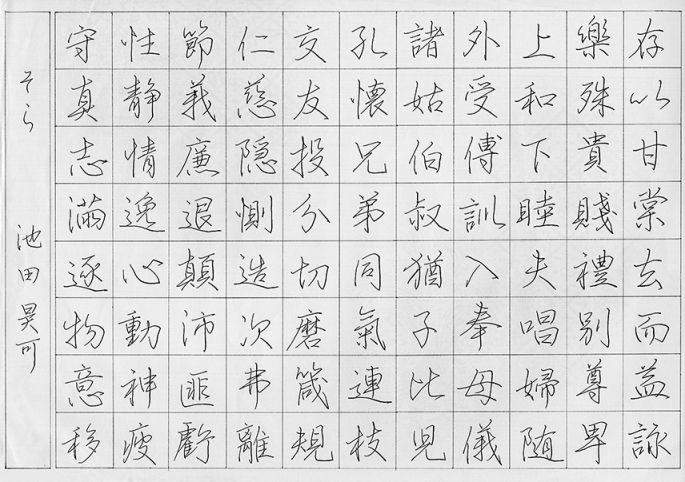 存以甘棠去而益詠
樂殊貴賤禮別尊卑
上和下睦夫唱婦随
外受傅訓入奉母儀
諸姑伯叔猶子比児
孔懐兄弟同氣連枝
交友投分切磨箴規
仁慈隠惻造次弗離
節義廉退顛沛匪虧
性静情逸心動神疲
守真志満逐物意移
そら 池田昊可